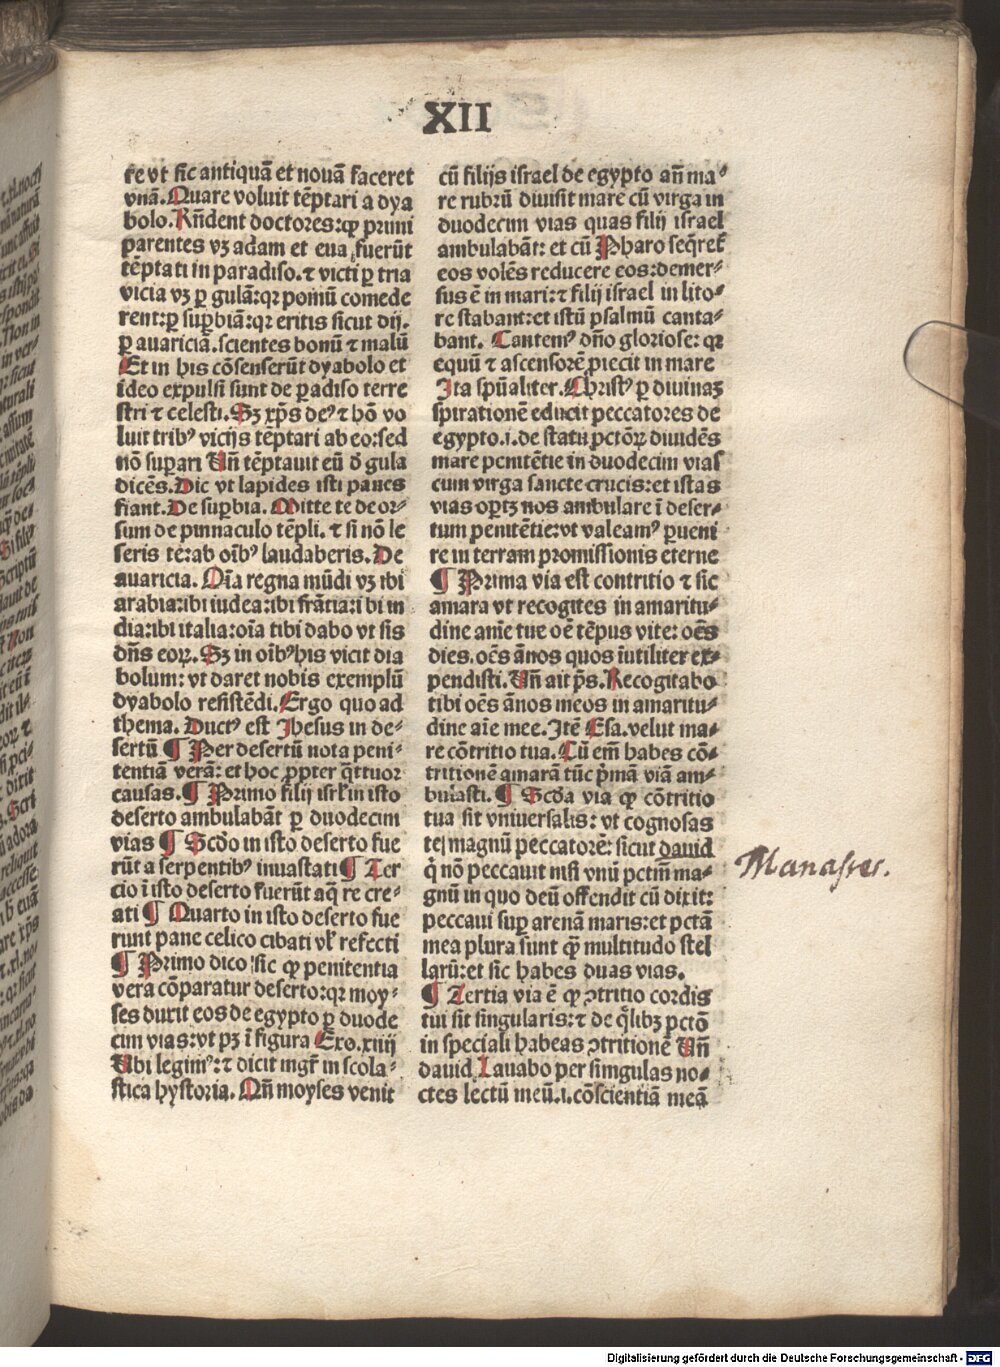 XII
re vt sic antiquā et nouā faceret
vnā. Quare voluit tēptari a dya
bolo. Rn̄dent doctores: ꝙ primi
parentes vꝫ adam et eua fuerūt
tēptati in paradiso. ⁊ victi ꝑ tria
vicia vꝫ ꝑ gulā: qꝛ pomū comede
rent: ꝑ suꝑbiā: qꝛ eritis sicut dij.
ꝑ auariciā. scientes bonū ⁊ malū
Et in his cōsenserūt dyabolo et
ideo expulsi sunt de ꝑadiso terre
stri ⁊ celesti. Sꝫ xp̄s deꝰ ⁊ hō vo
luit tribꝰ vicijs tēptari ab eo: sed
nō suꝑari Vn̄ tēptauit eū d̄ gula
dicēs. Dic vt lapides isti panes
fiant. De suꝑbia. Mitte te deor⸗
sum de pinnaculo tēpli. ⁊ si nō le
seris te: ab oībꝰ laudaberis. De
auaricia. Oīa regna mūdi vꝫ ibi
arabia: ibi iudea: ibi frātia: i bi in
dia: ibi italia: oīa tibi dabo vt sis
dn̄s eoꝝ. Sꝫ in oībꝰ his vicit dia
bolum: vt daret nobis exemplū
dyabolo resistēdi. Ergo quo ad
thema. Ductꝰ est Jhesus in de⸗
sertū ¶ Per desertū nota peni⸗
tentiā verā: et hoc ꝓpter q̄ttuor
causas. ¶ Primo filij isrl̄ in isto
deserto ambulabāt ꝑ duodecim
vias ¶ Scd̄o in isto deserto fue
rūt a serpentibꝰ inuastati ¶ Ter
cio ī isto deserto fuerūt aq̄ re cre⸗
ati ¶ Quarto in isto deserto fue
runt pane celico cibati vl̓ refecti
¶ Primo dico sic ꝙ penitentia
vera cōparatur deserto: qꝛ moy⸗
ses duxit eos de egypto ꝑ duode
cim vias: vt pꝫ ī figura Exo. xiiij
Vbi legimꝰ: ⁊ dicit mgr̄ in scola⸗
stica hystoria. Qn̄ moyses venit
cū filijs israel de egypto an̄ ma⸗
re rubrū diuisit mare cū virga in
duodecim vias quas filij israel
ambulabāt: et cū Pharo seq̄ret̄
eos volēs reducere eos: demer⸗
sus ē in mari: ⁊ filij israel in lito⸗
re stabant: et istū psalmū canta⸗
bant. Cantemꝰ dn̄o gloriose: qꝛ
equū ⁊ ascensorē ꝓiecit in mare
Ita spūaliter. Christꝰ ꝑ diuinaꝫ
spirationē educit peccatores de
egypto. i. de statu pctōꝝ diuidēs
mare penitētie in duodecim vias
cum virga sancte crucis: et istas
vias oportꝫ nos ambulare ī deser⸗
tum penitētie: vt valeamꝰ ꝑueni
re in terram promissionis eterne
¶ Prima via est contritio ⁊ sic
amara vt recogites in amaritu⸗
dine anīe tue oē tēpus vite: oēs
dies. oēs ānos quos īutiliter ex⸗
pendisti. Vn̄ ait ps̄. Recogitabo
tibi oēs ānos meos in amaritu⸗
dine aīe mee. Itē Esa. velut ma⸗
re cōtritio tua. Cū em̄ habes cō⸗
tritionē amarā tūc p̄mā viā am⸗
bulasti. ¶ Scd̄a via ꝙ cōtritio
tua sit vniuersalis: vt cognosas
te magnū peccatorē: sicut dauid
q̇ nō peccauit nisi vnū pctm̄ ma⸗
gnū in quo deū offendit cū dixit:
peccaui suꝑ arenā maris: et pctā
mea plura sunt ꝙ̄ multitudo stel
larū: et sic habes duas vias.
¶ Tertia via ē ꝙ ꝯtritio cordis
tui sit singularis: ⁊ de q̄libꝫ pctō
in speciali habeas ꝯtritionē Vn̄
dauid Lauabo per singulas no⸗
ctes lectū meū. i. cōscientiā meā
Manasses.
Digitalisierung gefördert durch die Deutsche Forschungsgemeinschaft - DFG